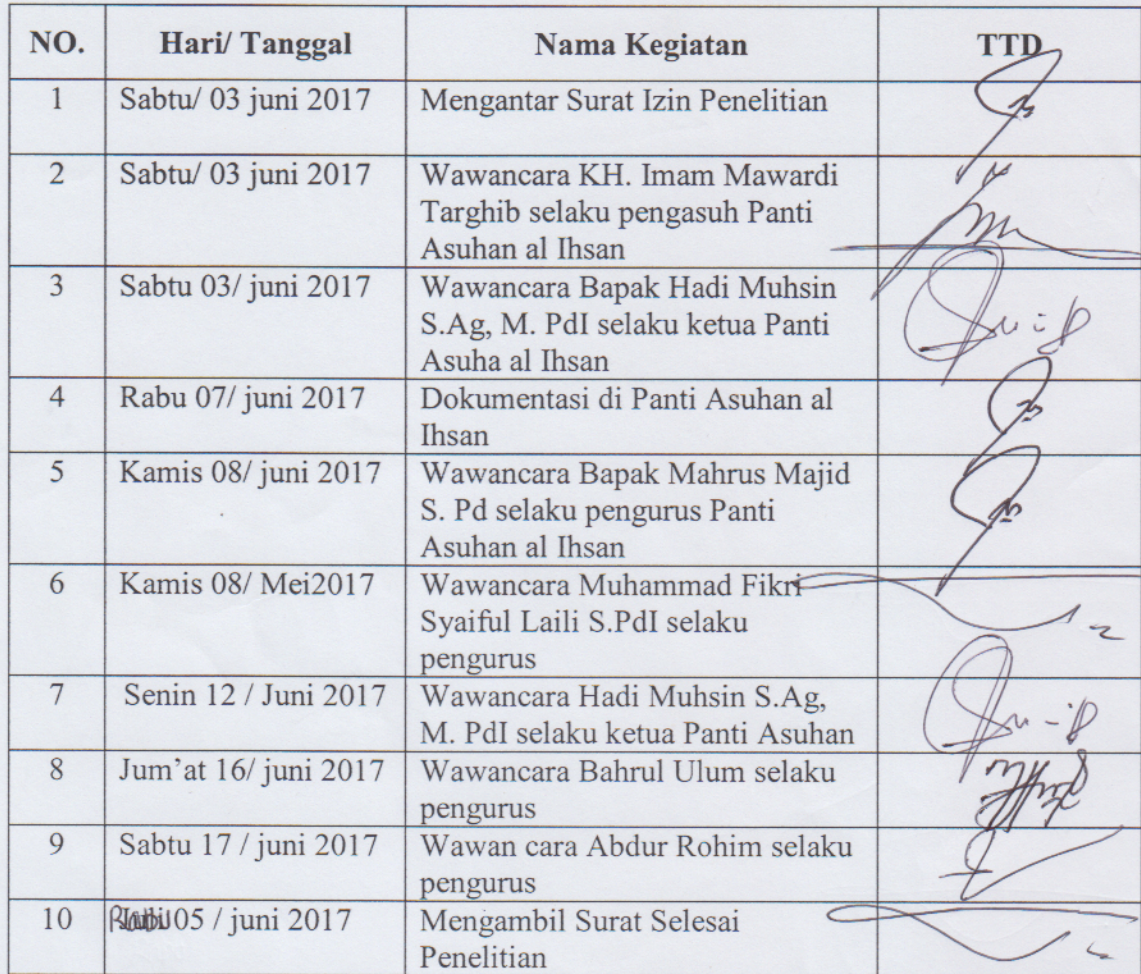 NO. Hari/ Tanggal Nama Kegiatan TTD
1 Sabtu/ 03 juni 2017 Mengantar Surat Izin Penelitian
2 Sabtu/ 03 juni 2017 Wawancara KH. Imam Mawardi
Targhib selaku pengasuh Panti
Asuhan al Ihsan
3 Sabtu 03/ juni 2017 Wawancara Bapak Hadi Muhsin
S.Ag, M. PdI selaku ketua Panti
Asuha al Ihsan
4 Rabu 07/ juni 2017 Dokumentasi di Panti Asuhan al
Ihsan
5 Kamis 08/ juni 2017 Wawancara Bapak Mahrus Majid
S. Pd selaku pengurus Panti
Asuhan al Ihsan
6 Kamis 08/ Mei2017 Wawancara Muhammad Fikri
Syaiful Laili S.PdI selaku
pengurus
7 Senin 12 / Juni 2017 Wawancara Hadi Muhsin S.Ag,
M. PdI selaku ketua Panti Asuhan
8 Jum'at 16/ juni 2017 Wawancara Bahrul Ulum selaku
pengurus
9 Sabtu 17 / juni 2017 Wawan cara Abdur Rohim selaku
pengurus
10 Rabu 05 / juni 2017 Mengambil Surat Selesai
Penelitian